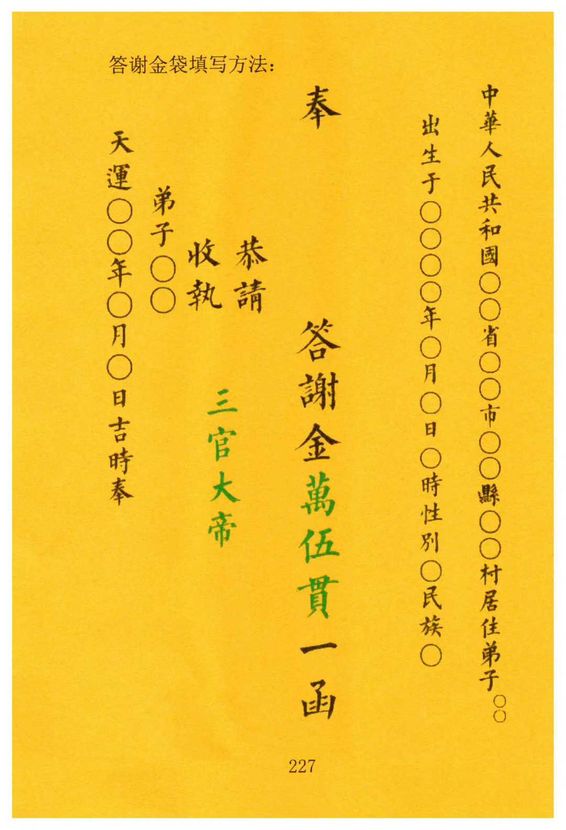 答谢金袋填写方法：
中華人民共和國〇〇省〇〇市〇〇縣〇〇村居住弟子〇〇
出生于〇〇〇〇年〇月〇日〇時性別〇民族〇
奉 答謝金萬伍貫一函
恭請 三官大帝 收執
弟子〇〇
天運〇〇年〇月〇日吉時奉
227